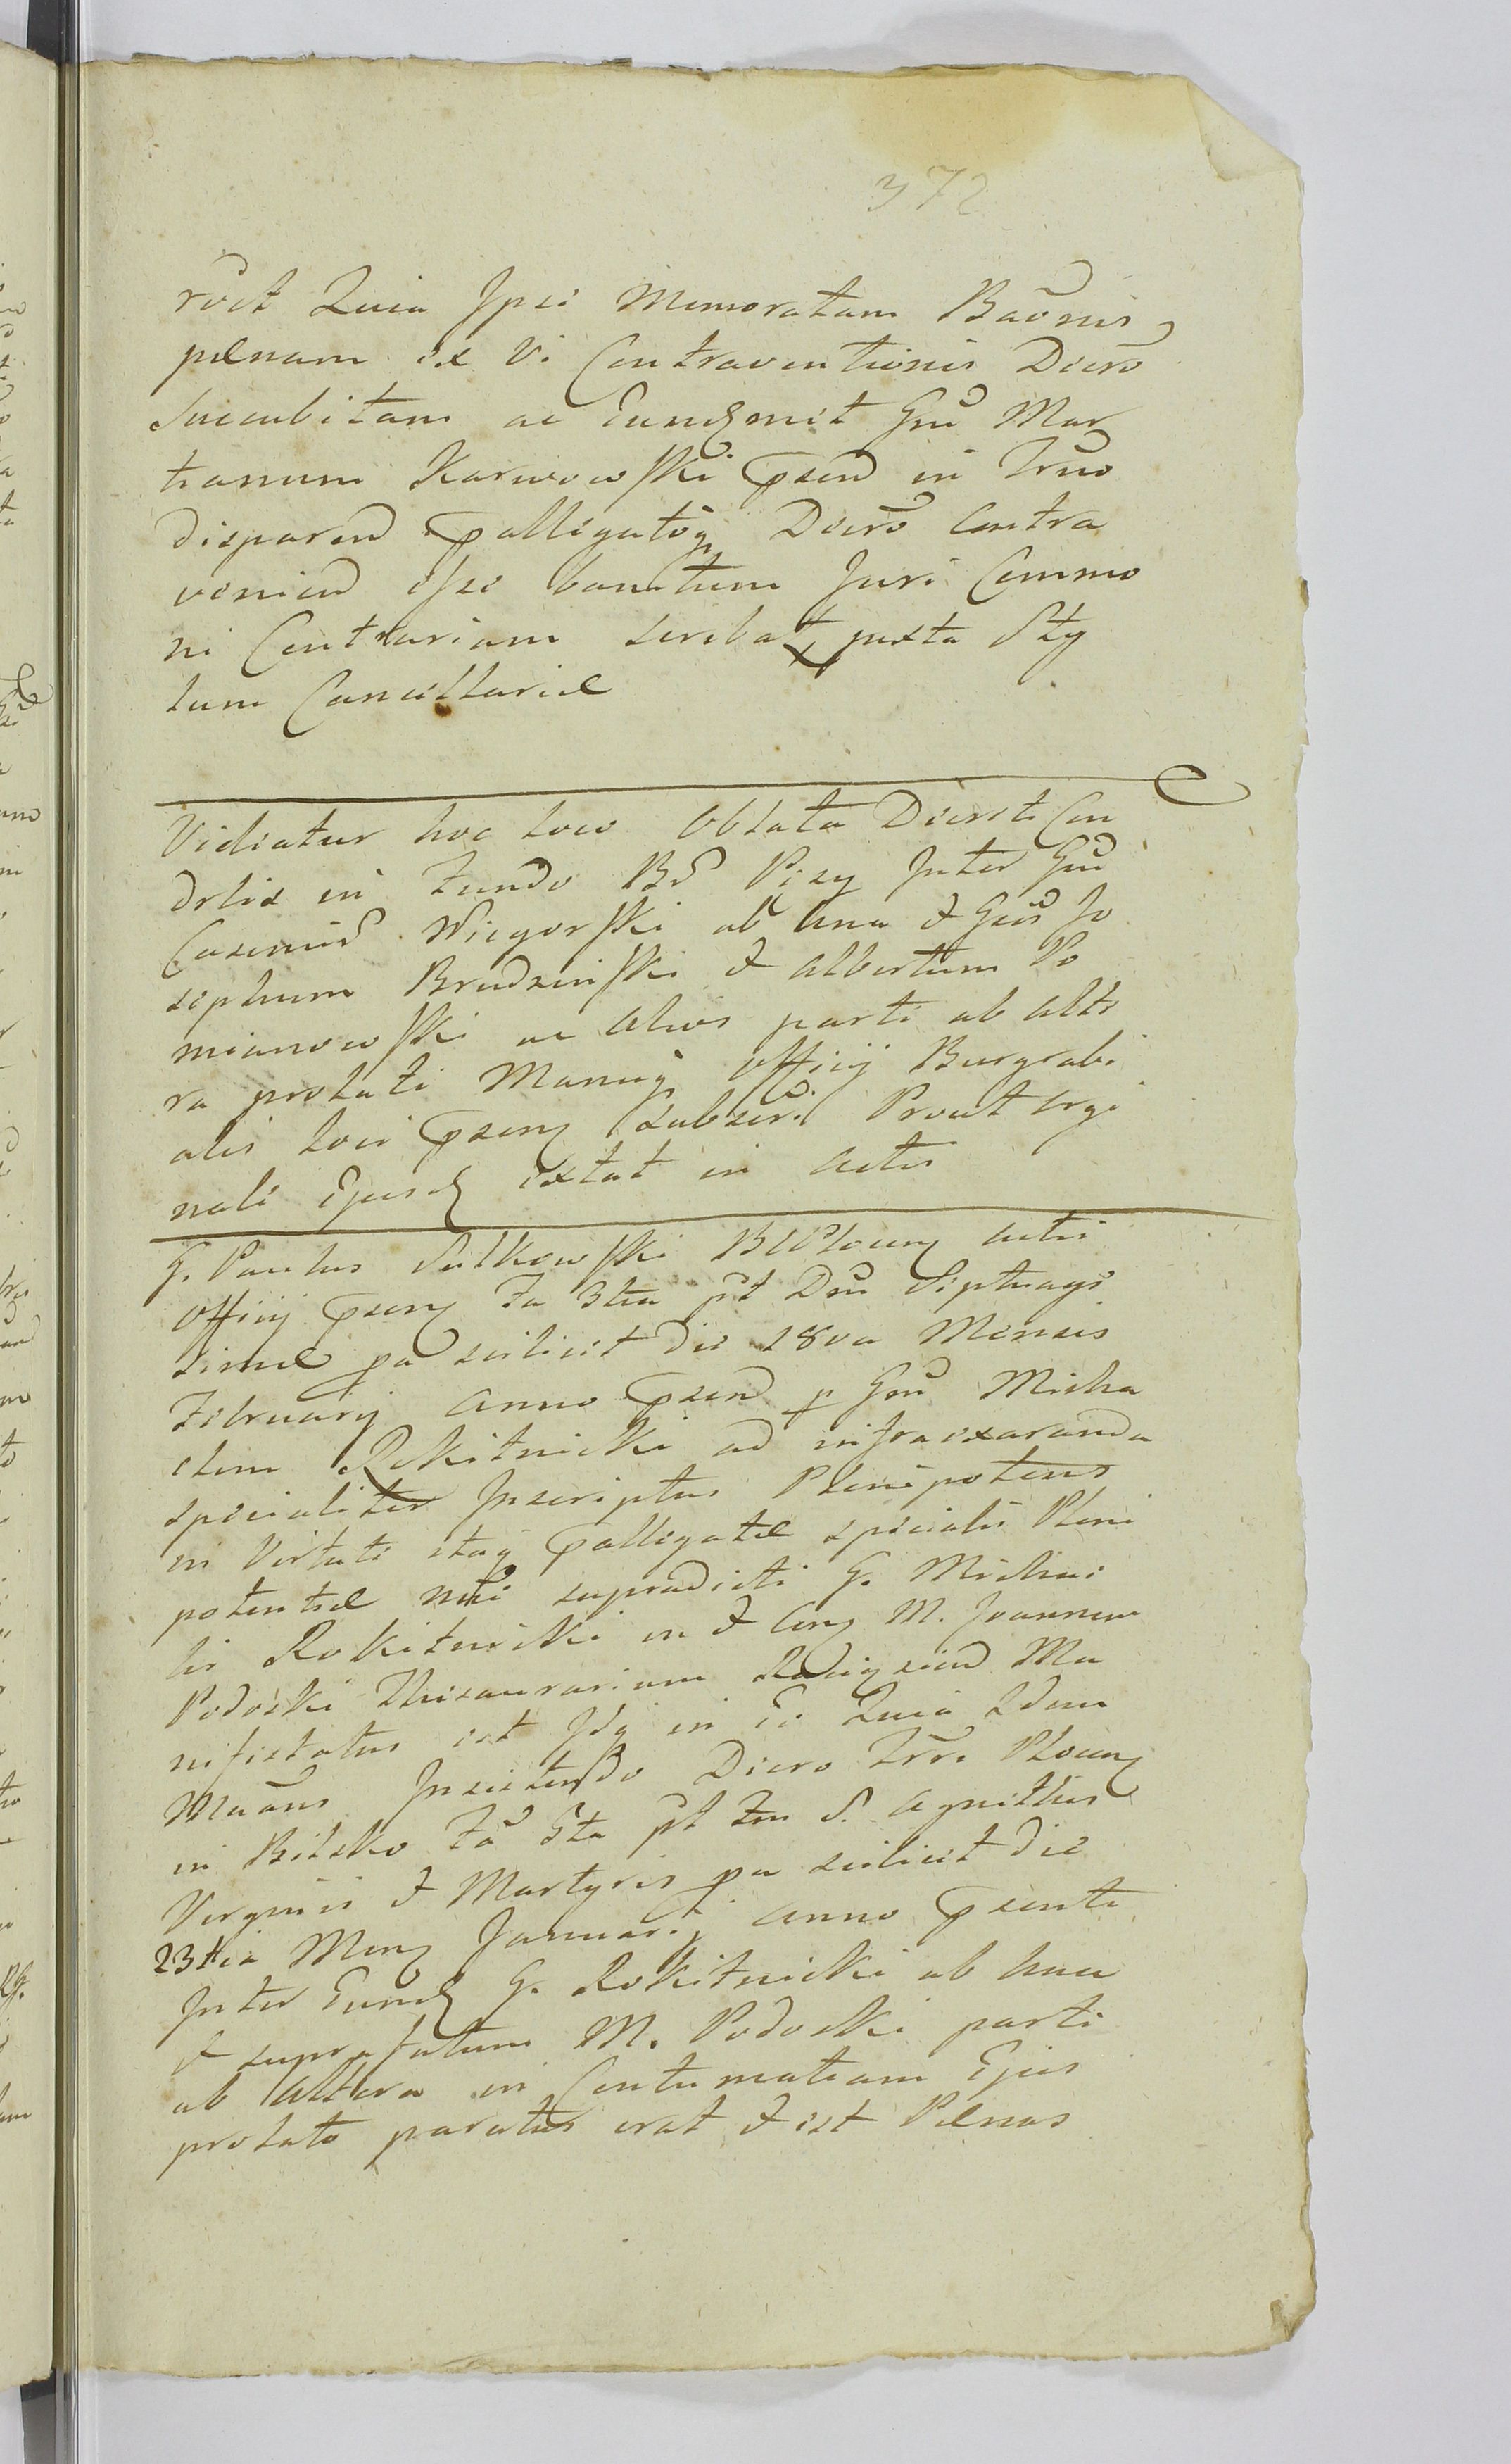 372
rōct Quia Ipse Memoratam Baōnis
pænam ex Vi Contraventionis Decro
Succubitam ac Eund met Gnū Mar
tianum Karwowski psend in Trno
disparend palligatōq Decro Contra
veniend esse banitum Juri Commu
ni Contrarium scribat juxta Sty
lum Cancellariæ
Videatur hoc loco Oblata Decreti Con
drlis in Fundo Bd Pizy Inter Gnū
Casimir Wiegorski ab Una & Gños Jo
sephum Brudzinski & Albertum Po
mianowski ac Alios parte ab Alte
ra prolati Manuq Officij Burgrabi
alis loci psens Subscri Prout orgi
nale Ejusd extat in Actis
G. Paulus Sutkowski BCPlocens Actis
Officij psens Fa 3tia pt Dnū Septuage
simæ pa scilicet die 18va Mensis
February Anno psend p Gnū Micha
elem Rokitnicki ad infraexaranda
specialiter Inscriptus Plenipotens
in Virtute itaq palligatæ specialis Pleni
potentiæ nte supradicti G. Michae
lis Rokitnicki in & Cong M. Joannem
Podoski Thesaurarium Raciązsend Ma
nifestatus est Idq in Eo Quia Idem
Mañns Insistendo Decro Trri Plocens
in Bilsko Fā 5ta pt Ftm S. Agnethis
Virginis & Martyris pa scilicet die
23tia Mens January Anno psente
Inter Eund G. Rokitnicki ab Una
& suprafatum M. Podoski parte
ab Altera in Contumatiam Ejus
prolato paratus erat & est Pænas